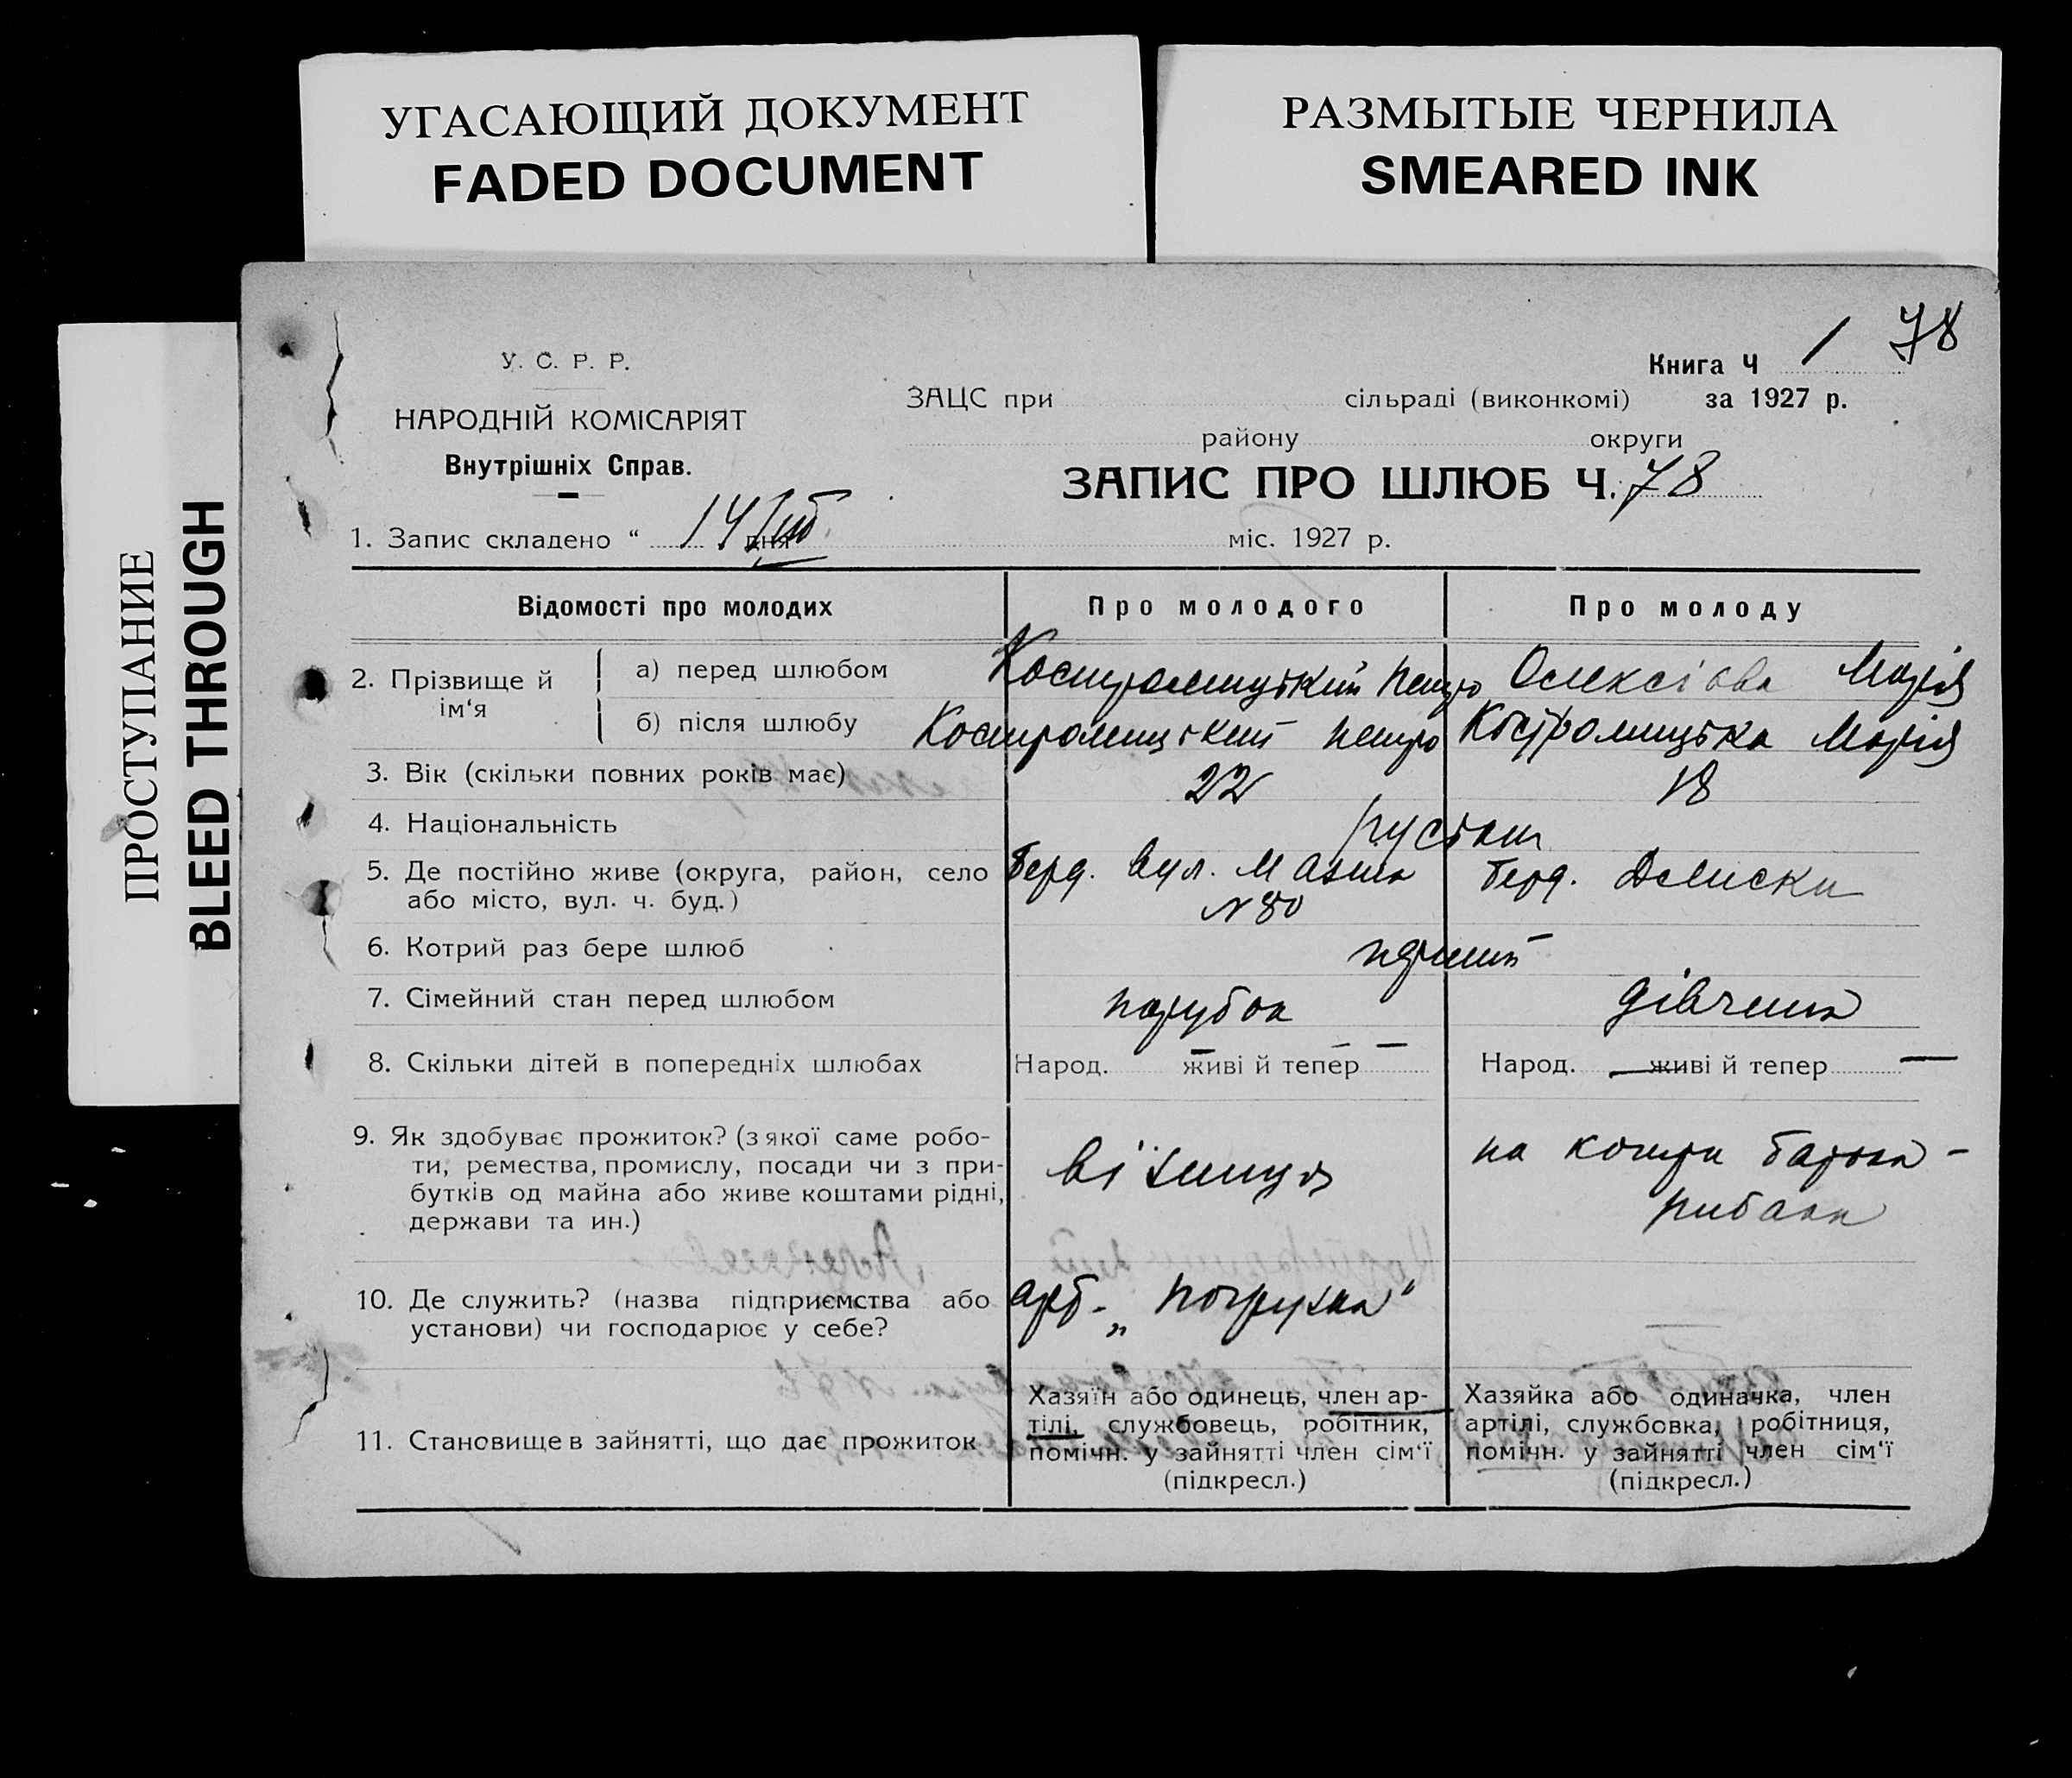 УГАСАЮЩИЙ ДОКУМЕНТ
FADED DOCUMENT
РАЗМЫТЫЕ ЧЕРНИЛА
SMEARED INK
ПРОСТУПАНИЕ
BLEED THROUGH
78
У. С. Р. Р.
Книга Ч 1
НАРОДНІЙ КОМІСАРІЯТ
Внутрішніх Справ.
ЗАЦС при сільраді (виконкомі) за 1927 р.
району округи
ЗАПИС ПРО ШЛЮБ Ч. 78
1. Запис складено “ 14 дня міс. 1927 р.
Відомості про молодих Про молодого Про молоду
2. Прізвище й ім‘я
а) перед шлюбом Костромицький Петро Олексієва Марія
б) після шлюбу Костромицький Петро Костромицька Марія
3. Вік (скільки повних років має) 22 18
4. Національність
5. Де постійно живе (округа, район, село або місто, вул. ч. буд.)
Берд. вул. Мазіна
N 80
Берд. Лиски
6. Котрий раз бере шлюб перший
7. Сімейний стан перед шлюбом парубок дівчина
8. Скільки дітей в попередніх шлюбах Народ. — живі й тепер — Народ. — живі й тепер —
9. Як здобуває прожиток? (з якої саме робо-
ти, ремества, промислу, посади чи з при-
бутків од майна або живе коштами рідні,
держави та ин.)
на кошти батька -
рибака
10. Де служить? (назва підприємства або
установи) чи господарює у себе?
арт. „Погрузка“
—
11. Становище в зайнятті, що дає прожиток
Хазяїн або одинець, член ар-
тілі, службовець, робітник,
помічн. у зайнятті член сім‘ї
(підкресл.)
Хазяйка або одиначка, член
артілі, службовка, робітниця,
помічн. у зайнятті член сім‘ї
(підкресл.)